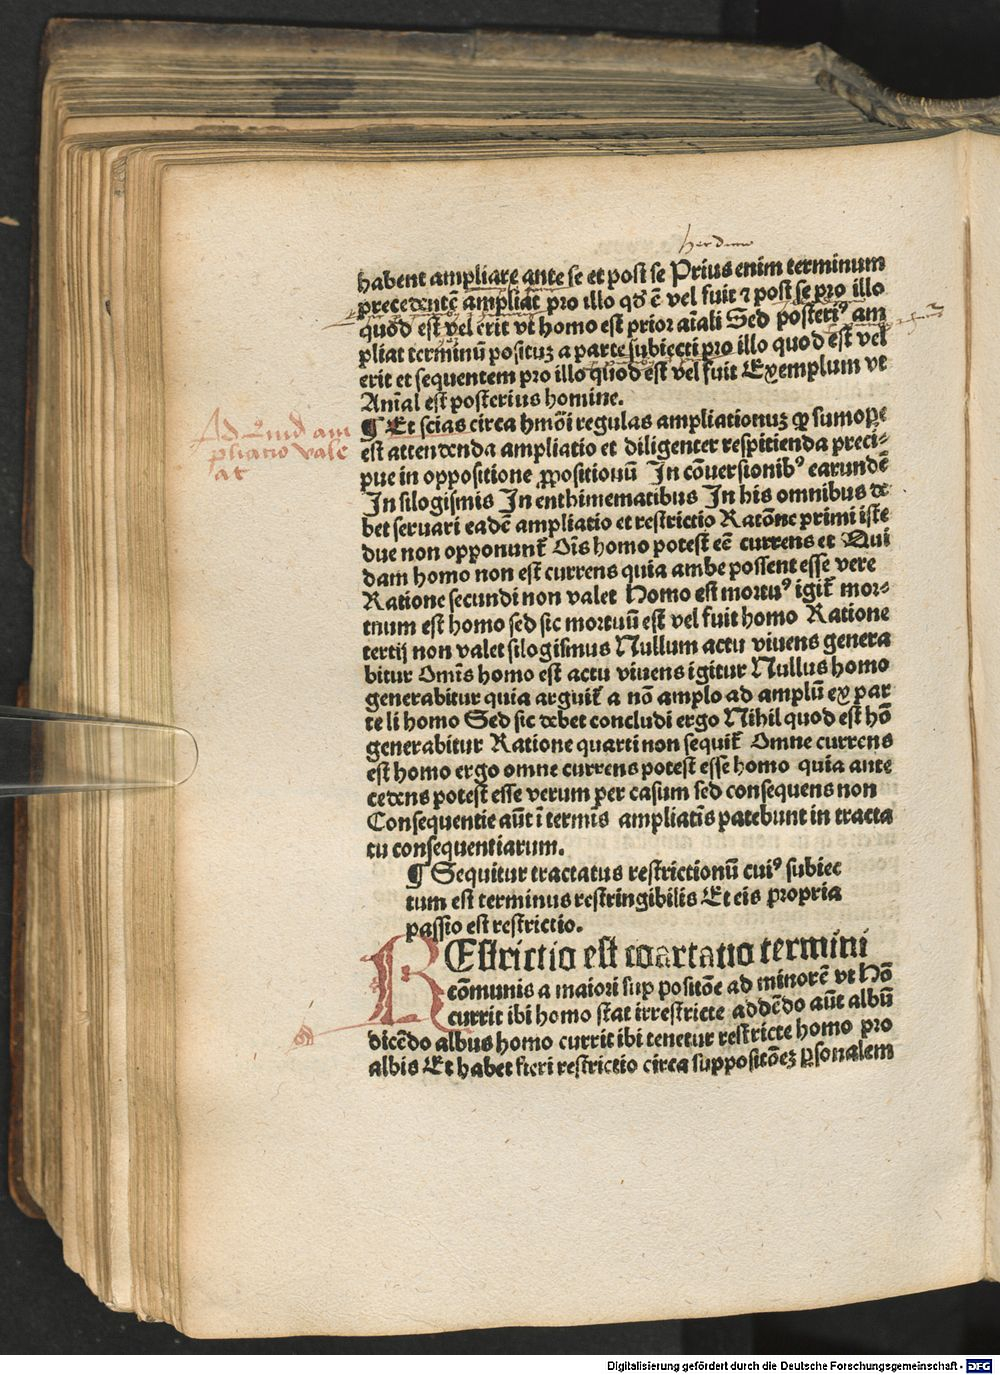 habent ampliare ante se et post se Prius enim terminum
precedentē ampliat pro illo qḋ ē vel fuit ⁊ post se pro illo
quod est vel erit vt homo est prior aīali Sed posteriꝰ am
pliat terminū posituꝫ a parte subiecti pro illo quod est vel
erit et sequentem pro illo quod est vel fuit Exemplum vt
Anīal est posterius homine.
Ad Quid am
pliatio vale
at
¶ Et scias circa hmōi regulas ampliationuꝫ ꝙ sumope
est attendenda ampliatio et diligenter respitienda preci-
pue in oppositione ꝓpositionū In cōuersionibꝰ earundē
In silogismis In enthimematibus In his omnibus de
bet seruari eadē ampliatio et restrictio Ratōne primi iste
due non opponunt̄ Oīs homo potest eē currens et Qui
dam homo non est currens quia ambe possent esse vere
Ratione secundi non valet Homo est mortuꝰ igit̄ mor-
tuum est homo sed sic mortuū est vel fuit homo Ratione
tertij non valet silogismus Nullum actu viuens genera
bitur Omīs homo est actu viuens igitur Nullus homo
generabitur quia arguit̄ a nō amplo ad amplū ex par
te li homo Sed sic debet concludi ergo Nihil quod est hō
generabitur Ratione quarti non sequit̄ Omne currens
est homo ergo omne currens potest esse homo quia ante
cedens potest esse verum per casum sed consequens non
Consequentie aūt ī termis ampliatīs patebunt in tracta
tu consequentiarum.
¶ Sequitur tractatus restrictionū cuiꝰ subiec
tum est terminus restringibilis Et eis propria
passio est restrictio.
REstrictio est coartatio termini
cōmunis a maiori sup positōe ad minorē vt Hō
currit ibi homo stat irrestricte addēdo aūt albū
dicēdo albus homo currit ibi tenetur restricte homo pro
albis Et habet fieri restrictio circa suppositōeꝫ ꝑsonalem
Digitalisierung gefördert durch die Deutsche Forschungsgemeinschaft - DFG